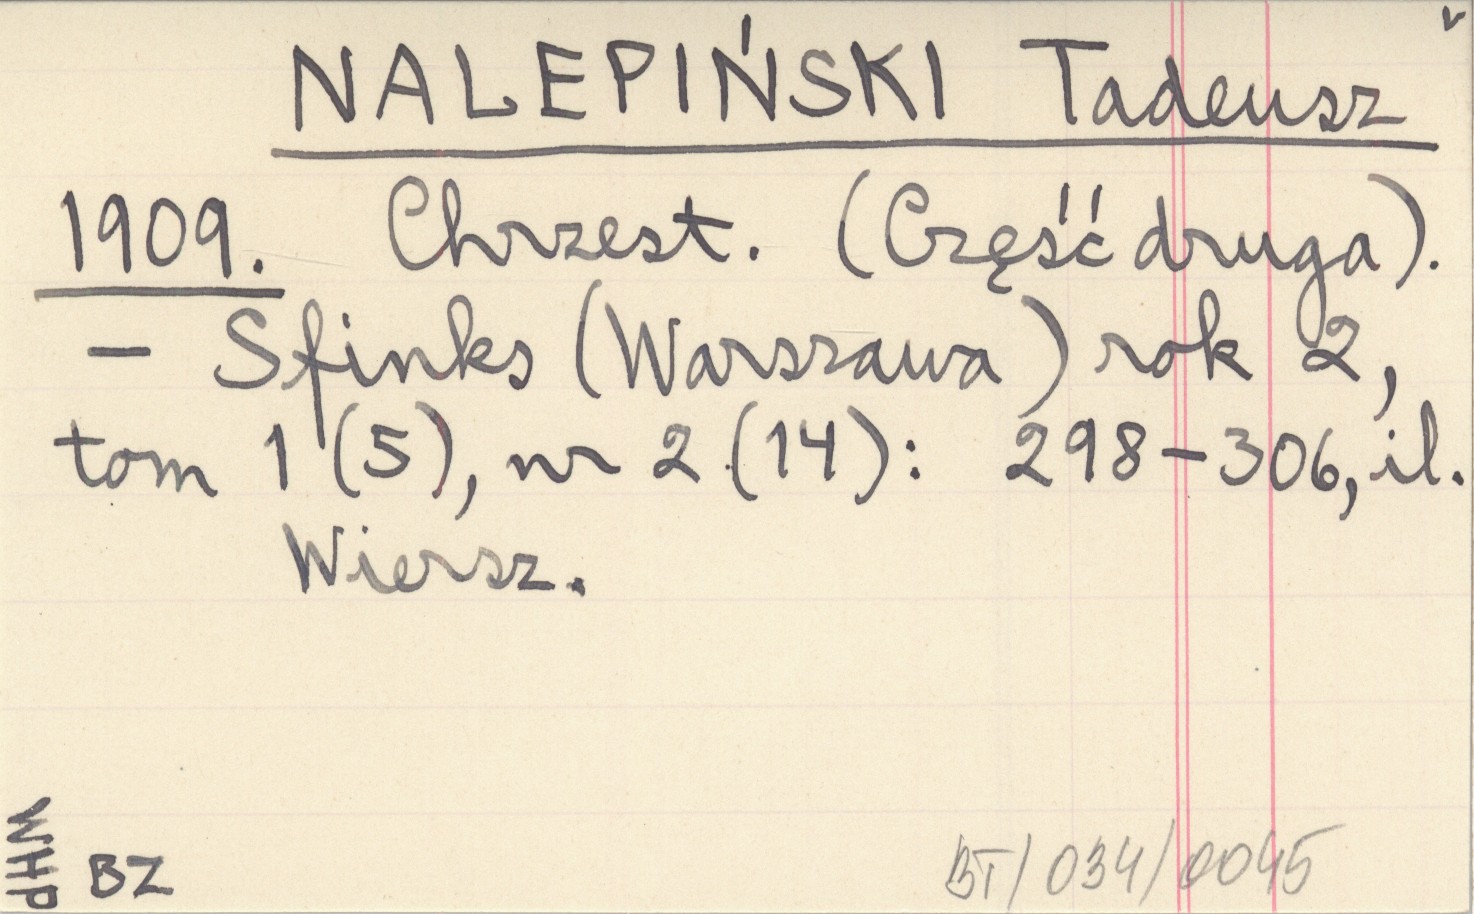 v
NALEPIŃSKI Tadeusz
1909. Chrzest. (Część druga).
– Sfinks (Warszawa) rok 2,
tom 1 (5), nr 2 (14): 298–306, il.
Wiersz.
WHP
BZ
BT/034/0045